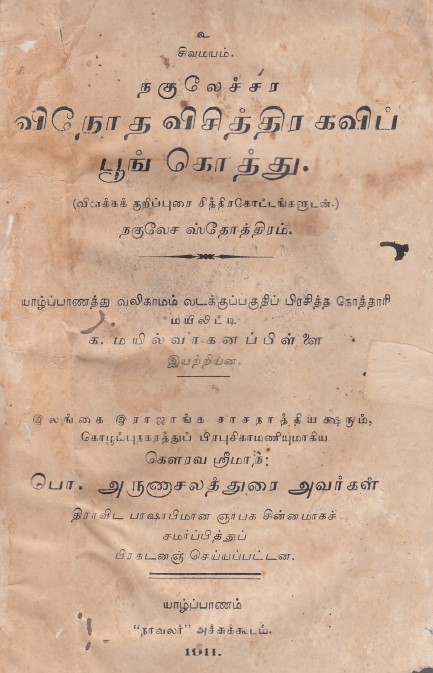 உ
சிவமயம்.
நகுலேச்சர
விநோத விசித்திர கவிப்
பூங் கொத்து.
(விளக்கக் குறிப்புரை சித்திரகோட்டங்களுடன்.)
நகுலேச ஸ்தோத்திரம்.
யாழ்ப்பாணத்து வலிகாமம் வடக்குப்பகுதிப் பிரசித்த நொத்தாரி
மயிலிட்டி
க. மயில்வாகனப்பிள்ளை
இயற்றியன.
இலங்கை இராஜாங்க சாசநாத்தியக்ஷரும்,
கொழும்புநகரத்துப் பிரபுசிகாமணியுமாகிய
கௌரவ ஸ்ரீமாந்:
பொ. அருணாசலத்துரை அவர்கள்
திராவிட பாஷாபிமான ஞாபக சின்னமாகச்
சமர்ப்பித்துப்
பிரகடனஞ் செய்யப்பட்டன.
யாழ்ப்பாணம்
"நாவலர்" அச்சுக்கூடம்.
1911.